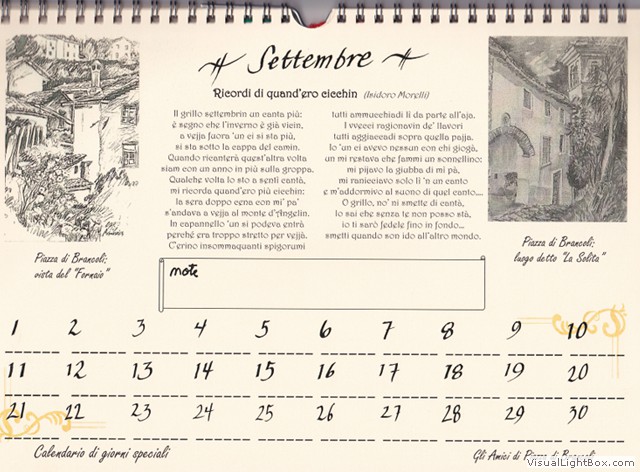 Settembre
Ricordi di quand'ero cicchin (Isidoro Morelli)
Il grillo settembrin un canta più:
è segno che l'inverno è già vicin,
a vejja fuora 'un ci si sta più,
si sta sotto la cappa del camin.
Quando ricanterà quest'altra volta
siam con un anno in più sulla groppa.
Qualche volta lo sto a sentì cantà,
mi ricorda quand'ero più cicchin:
la sera doppo cena con mi' pa'
s'andava a vejja al monte d'Angelin.
In capannello 'un si podeva entrà
perché era troppo stretto per vejjà.
C'erino insommaquanti spigorumi
tutti ammucchiadi lì da parte all'aja.
I vvecci ragionavin de' llavori
tutti aggiaccadi sopra quella pajja.
Io 'un ci avevo nessun con chi giogà,
un mi restava che fammi un sonnellino:
mi pijavo la giubba di mi pà,
mi ranicciavo solo lì 'n un canto
e m'addormivo al suono di quel canto....
O grillo, no' ni smette di cantà,
lo sai che senza te non posso stà,
io ti sarò fedele fino in fondo...
smetti quando son ido all'altro mondo.
Piazza di Brancoli:
vista del "Fornaio"
Piazza di Brancoli:
luogo detto "La Solita"
note
1 2 3 4 5 6 7 8 9 10
11 12 13 14 15 16 17 18 19 20
21 22 23 24 25 26 27 28 29 30
Calendario di giorni speciali
Gli Amici di Piazza di Brancoli
VisualLightBox.com